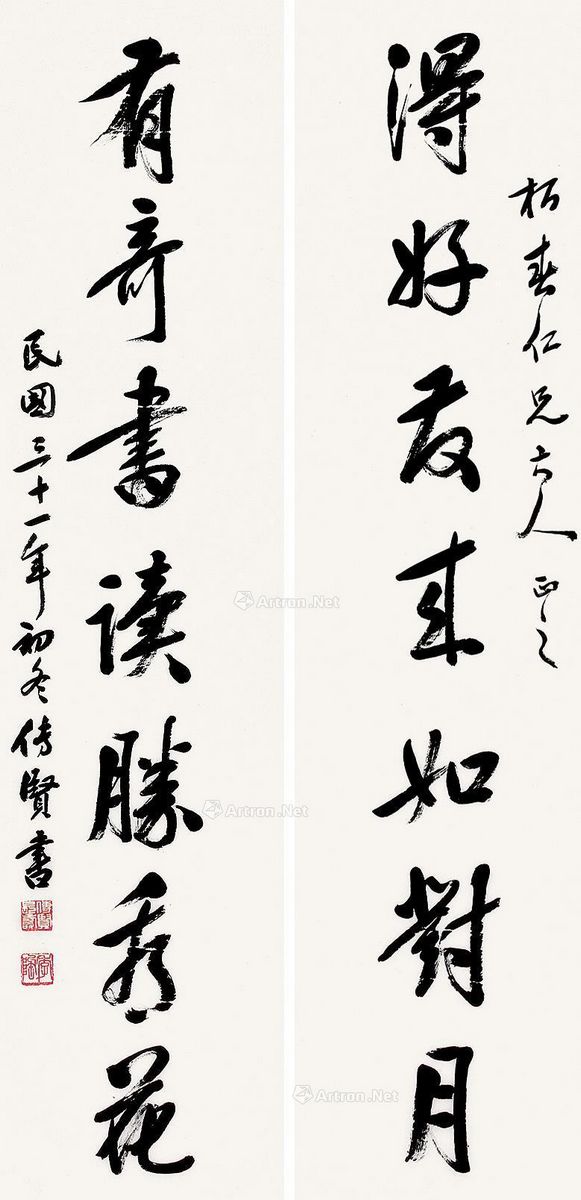 柏春仁兄大人正之
得好友来如對月
有奇書读勝看花
民國三十一年初冬传賢書
Artron.Net
Artron.Net
Artron.Net
Artron.Net